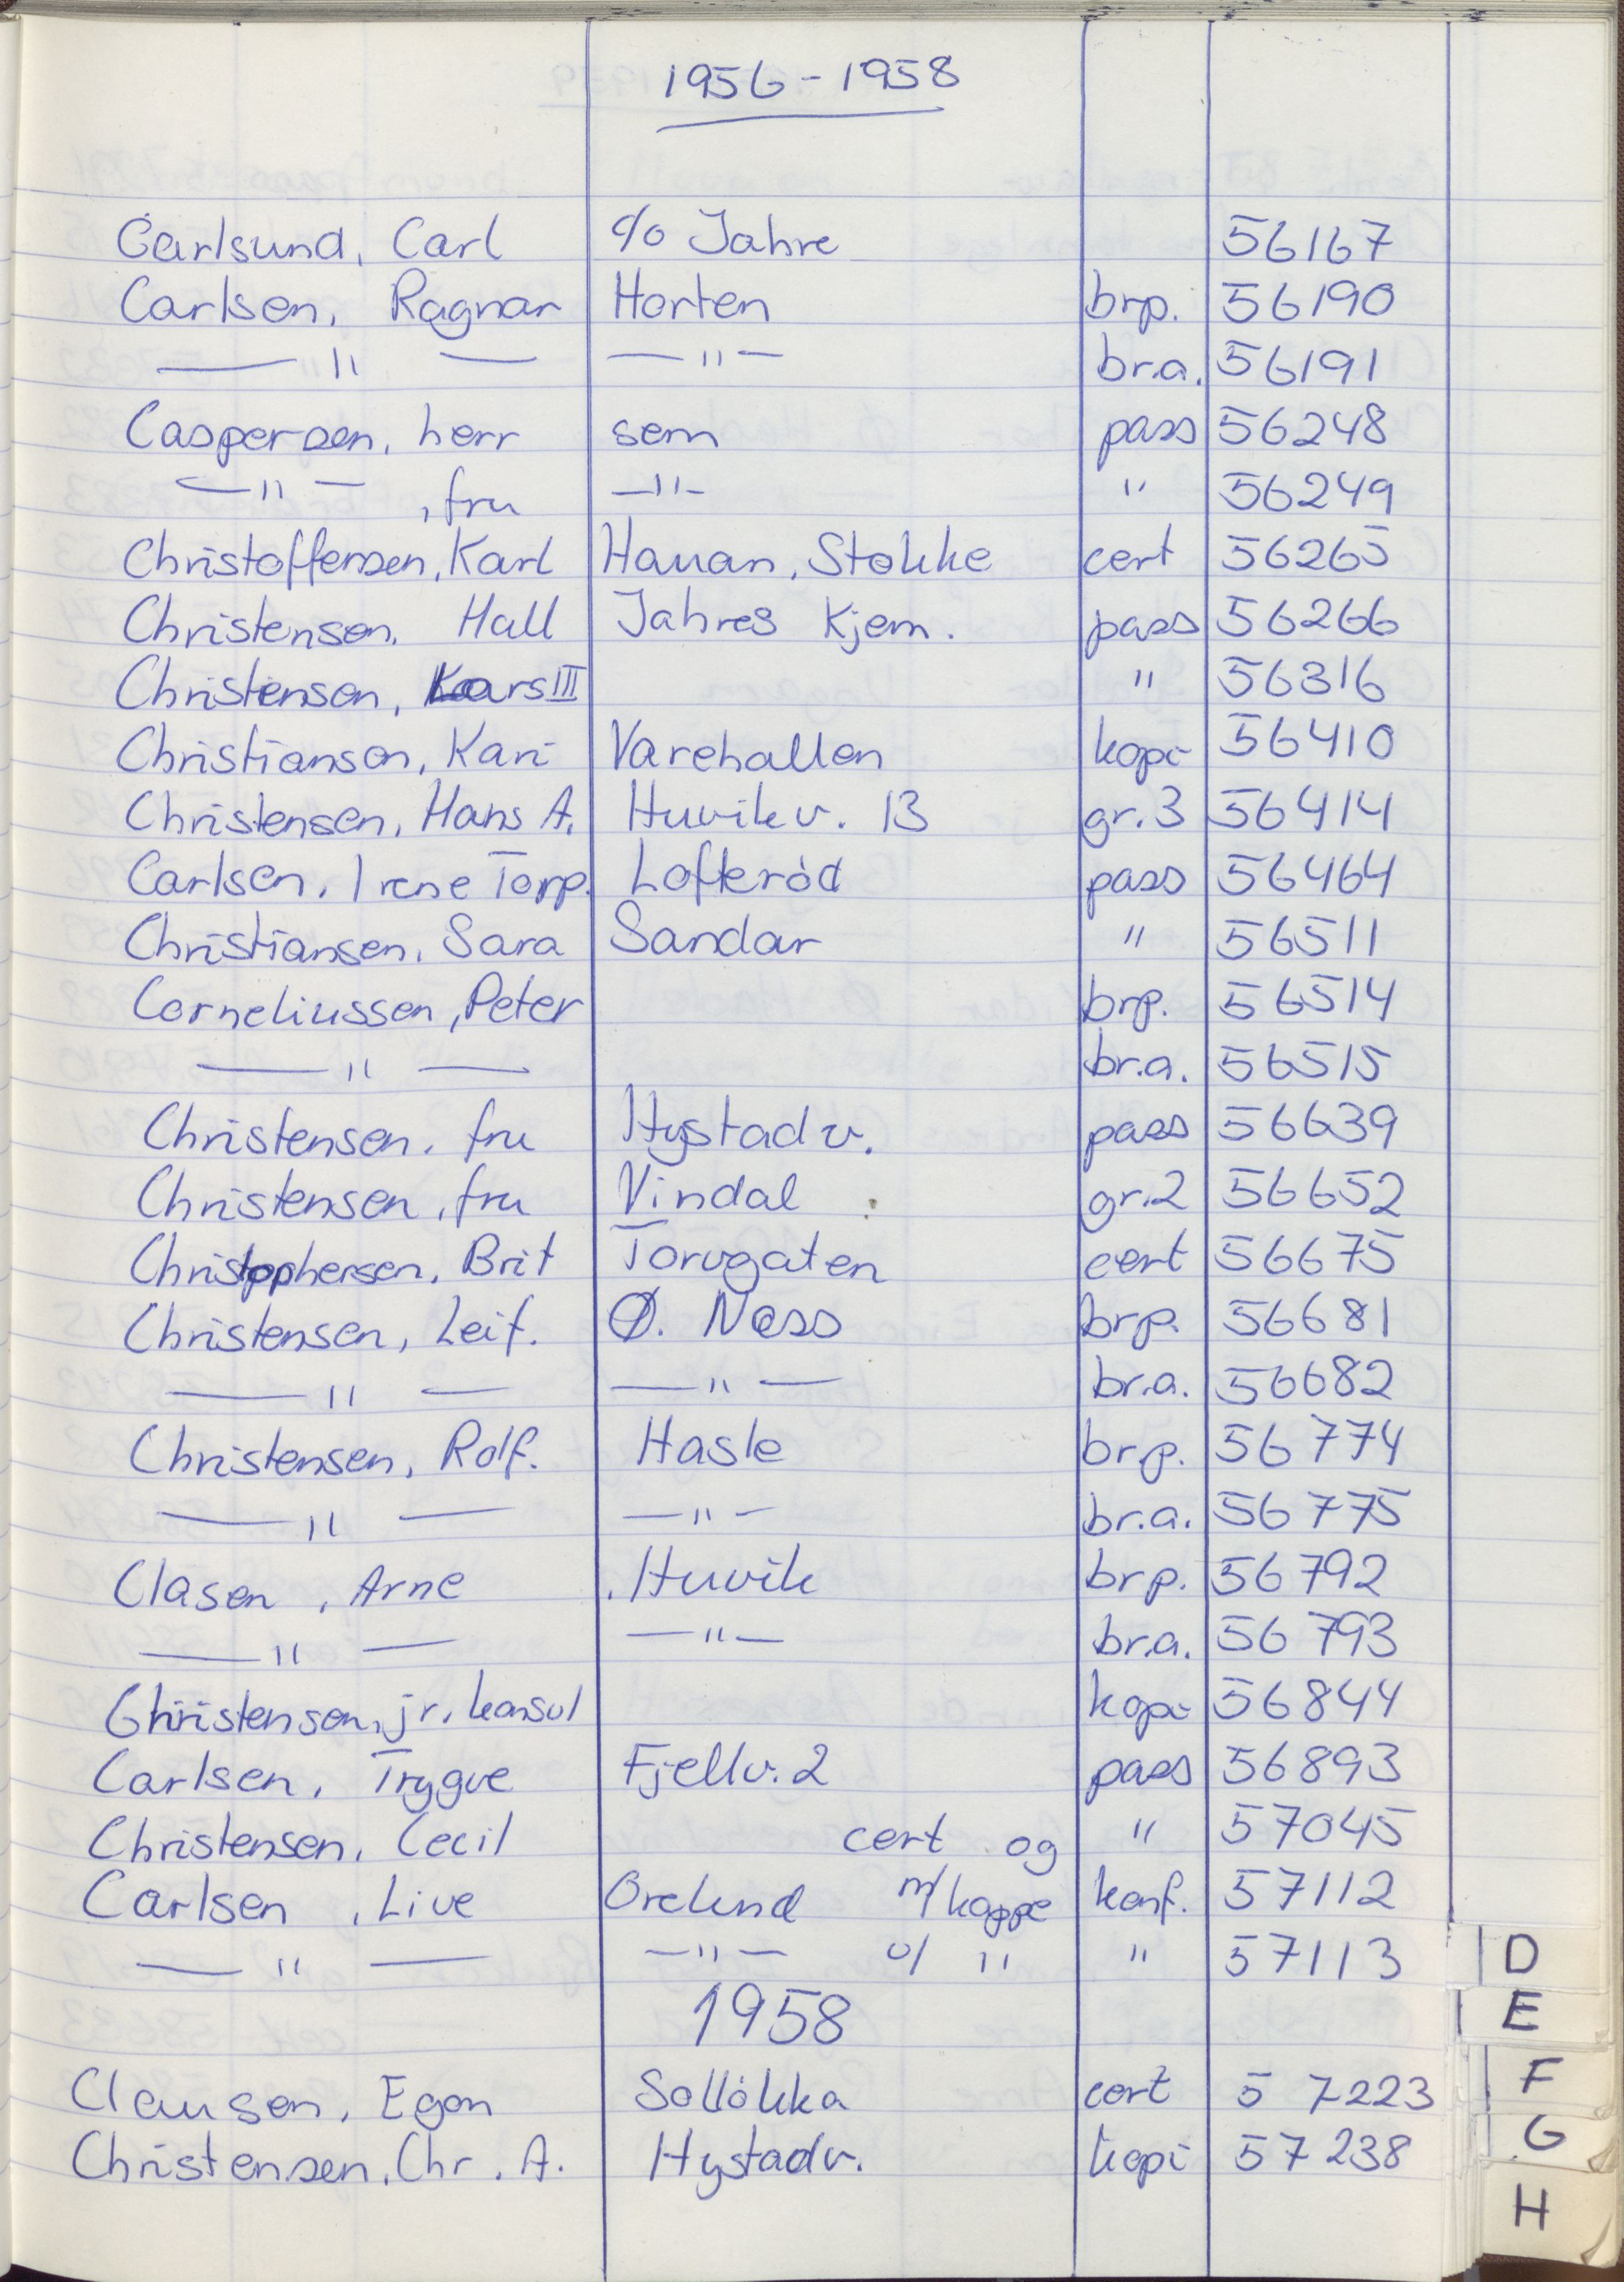 1956-1958
Carlsund, Carl c/o Jahre 56167
Carlsen, Ragnar Horten brp. 56190
— " — — " — br.a. 56191
Caspersen, herr sem pass 56248
— " — , fru — " — " 56249
Christoffersen, Karl Hauan, Stokke cert 56265
Christensen, Hall Jahres Kjem. pass 56266
Christensen, Lars III " 56316
Christiansen, Kari Varehallen kopi 56410
Christensen, Hans A. Huvikv. 13 gr. 3 56414
Carlsen, Irene Torp. Lofteröd pass 56464
Christiansen, Sara Sandar " 56511
Corneliussen, Peter brp. 56514
— " — br.a. 56515
Christensen, fru Hystadv. pass 56639
Christensen, fru Vindal gr. 2 56652
Christophersen, Brit Torvgaten cert 56675
Christensen, Leif. Ø. Ness brp. 56681
— " — — " — br.a. 56682
Christensen, Rolf. Hasle brp. 56774
— " — — " — br.a. 56775
Clasen, Arne Huvik brp. 56792
— " — — " — br.a. 56793
Christensen, jr. konsul kopi 56844
Carlsen, Trygve Fjellv. 2 pass 56893
Christensen, Cecil cert og " 57045
Carlsen, Live Orelund m/ kappe konf. 57112
— " — — " — u/ " " 57113
1958
Clausen, Egon Sollökka cert 57223
Christensen, Chr. A. Hystadv. kopi 57238
D
E
F
G
H